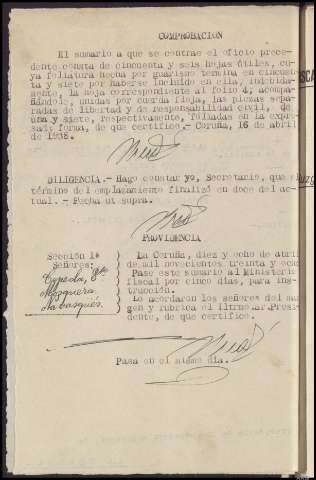 COMPROBACION
El sumario a que se contrae el oficio prece-
dente consta de cincuenta y seis hojas útiles, cu-
ya foliatura hecha por guarismo termina en cincuenta
y siete por haberse incluido en ella, indebida-
mente, la hoja correspondiente al folio 4; acompa-
ñándole, unidas por cuerda floja, las piezas sepa-
radas de libertad y de responsabilidad civil, de
una y siete, respectivamente, foliadas en la expre-
sada forma, de que certifico.- Coruña, 16 de abril
de 1938.
DILIGENCIA.- Hago constar yo, Secretario, que el
término del emplazamiento finalizó en doce del ac-
tual.- Fecha ut supra.
PROVIDENCIA
Sección 1ª
Señores:
Cepeda, Pte
Mosquera
La Coruña, diez y ocho de abril
de mil novecientos treinta y ocho
Pase este sumario al Ministerio
fiscal por cinco días, para ins-
trucción.
Lo acordaron los señores del mar-
gen y rubrica el Iltmo. Sr. Presi-
dente, de que certifico.
Pasa en el mismo día.